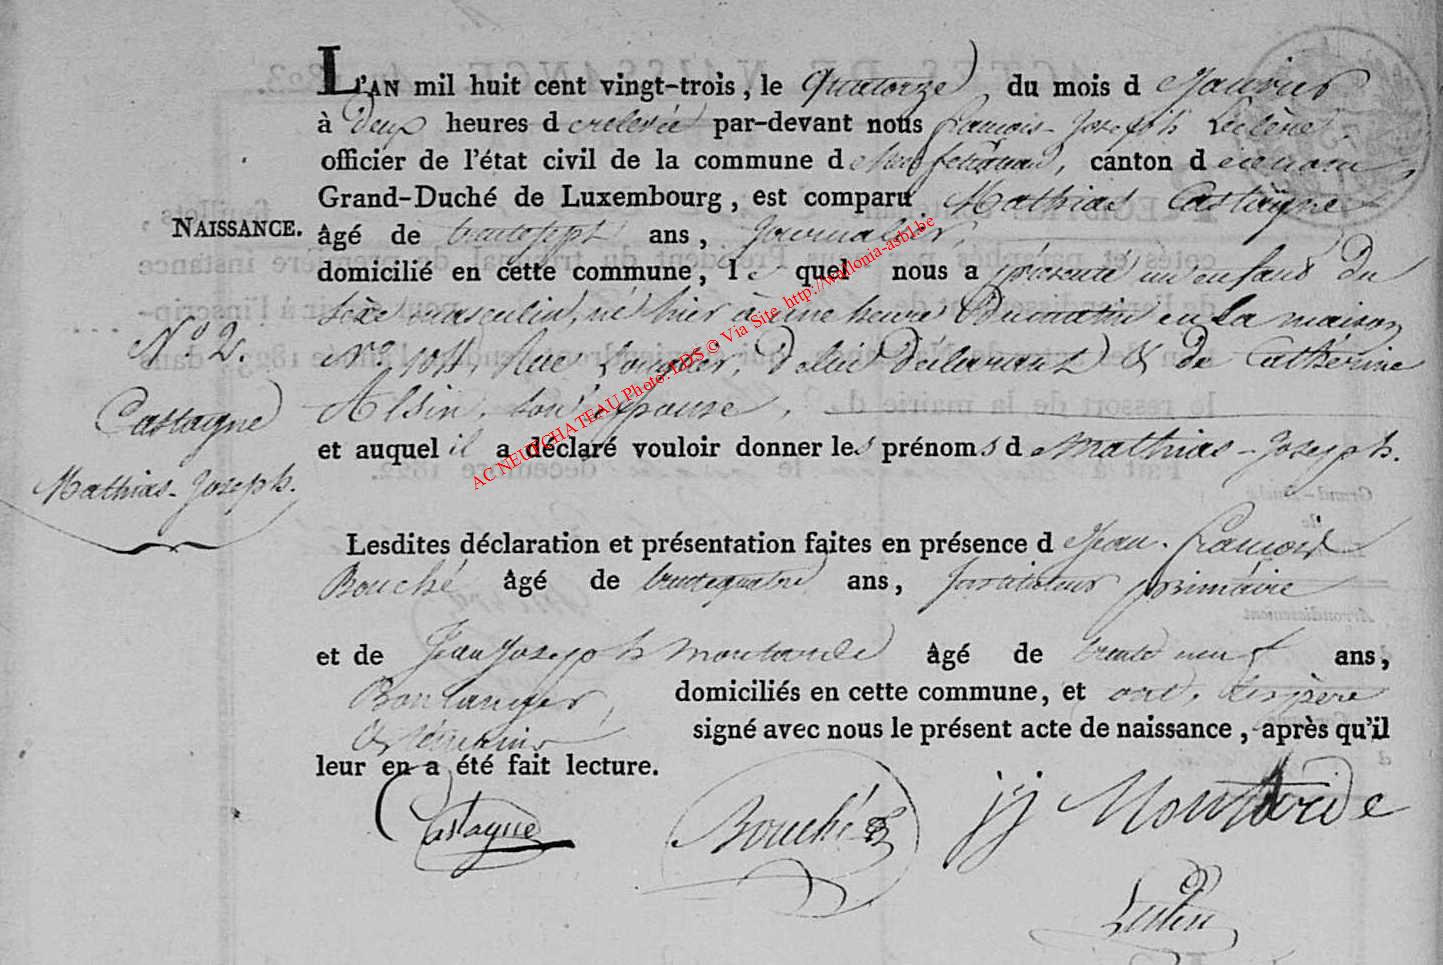 L'AN mil huit cent vingt-trois, le Quatorze du mois d e Janvier
à Deux heures d e relevée par-devant nous françois-Joseph
officier de l'état civil de la commune d e Neufchâteau, canton d
Grand-Duché de Luxembourg, est comparu Mathias Castagne
NAISSANCE.
âgé de trentesept ans, Journalier,
domicilié en cette commune, le quel nous a présenté un enfant du
sexe masculin, né hier à une heure du matin en la maison
N° 2.
N° 104, Rue, de lui déclarant & de Cathérine
Castagne
Alsin, son épouse,
et auquel il a déclaré vouloir donner les prénoms d e Mathias-Joseph.
Mathias-Joseph.
Lesdites déclaration et présentation faites en présence d e Jean-François
Bouché âgé de trentequatre ans, Instituteur primaire
et de Jean Joseph Moutarde âgé de trente neuf ans,
Boulanger, domiciliés en cette commune, et ont, le père
& témoins signé avec nous le présent acte de naissance, après qu'il
leur en a été fait lecture.
Castagne Bouché jj Moutarde
AC NEUFCHATEAU Photo: LDS © Via Site http://wallonia-asbl.be